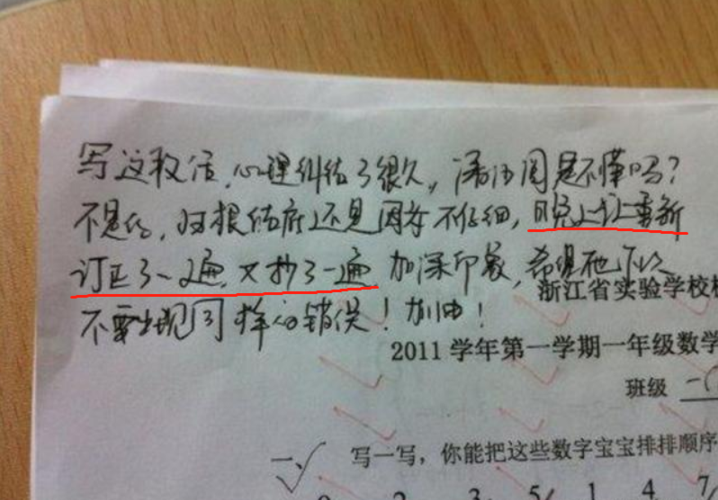 写这段话,心里纠结了很久,潘汤周是不懂吗?
不是的,归根结底还是因为不仔细,晚上让重新
订正了一遍,又抄了一遍,加深印象,希望他下次
不要出现同样的错误!加油!
浙江省实验学校
2011 学年第一学期一年级数学
班级 一(
一、写一写,你能把这些数字宝宝排排顺序
2 3 5 1 4 7